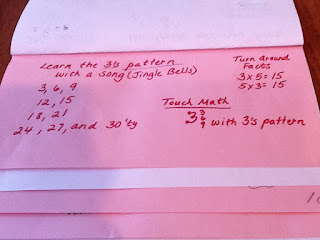 Learn the 3's pattern
with a song (Jingle Bells)
3, 6, 9
12, 15
18, 21
24, 27, and 30'ty
Turn around
Facts
3x5=15
5x3=15
Touch Math
3 3 6 9 with 3's pattern